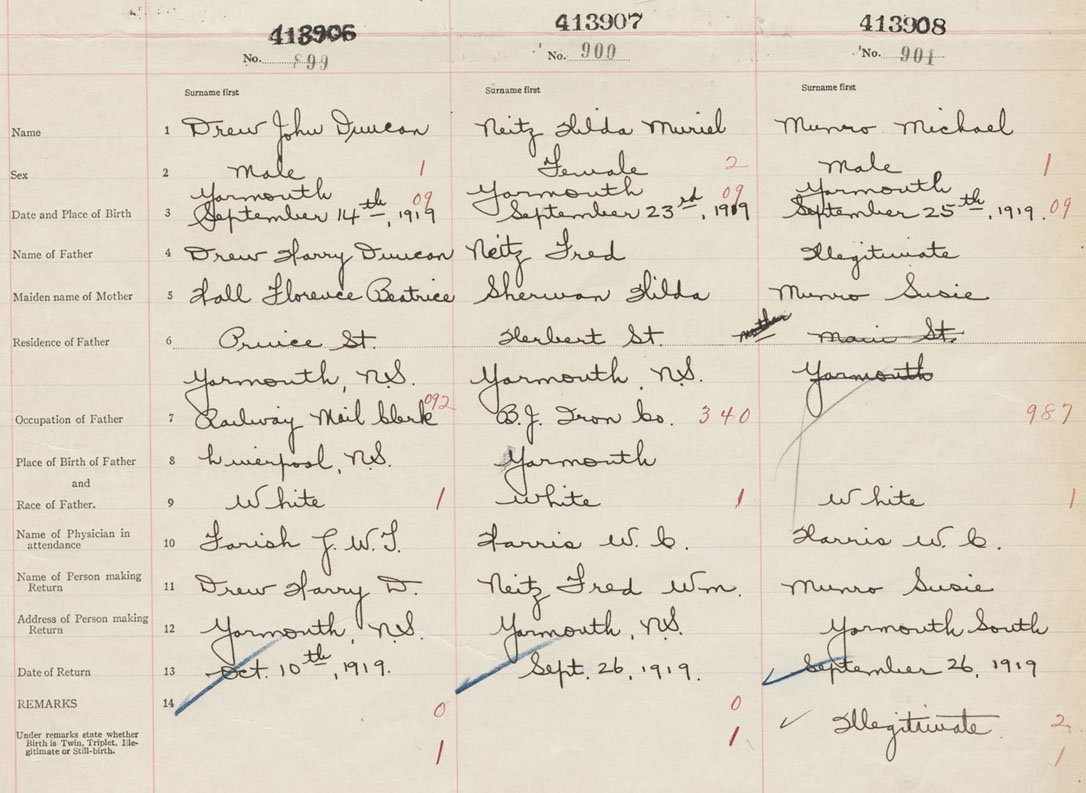 413906 413907 413908
No. 899 No. 900 No. 901
Surname first Surname first Surname first
Name 1 Drew John Duncan Neitz Hilda Muriel Munro Michael
Sex 2 Male 1 Female 2 Male 1
Yarmouth 09 Yarmouth 09 Yarmouth
Date and Place of Birth 3 September 14th, 1919 September 23rd, 1919 September 25th, 1919. 09
Name of Father 4 Drew Harry Duncan Neitz Fred Illegitimate
Maiden name of Mother 5 Hall Florence Beatrice Sherman Hilda Munro Susie
Residence of Father 6 Prince St. Herbert St. mother Main St.
Yarmouth, N.S. Yarmouth, N.S. Yarmouth
Occupation of Father 7 Railway Mail Clerk 092 B.J. Iron Co. 340 987
Place of Birth of Father 8 Liverpool, N.S. Yarmouth
and
Race of Father. 9 White 1 White 1 White 1
Name of Physician in
attendance 10 Farish J. W. T. Harris W. C. Harris W. C.
Name of Person making
Return 11 Drew Harry D. Neitz Fred Wm. Munro Susie
Address of Person making
Return 12 Yarmouth, N.S. Yarmouth, N.S. Yarmouth South
Date of Return 13 Oct. 10th, 1919. Sept. 26, 1919. September 26, 1919
REMARKS 14 0 0 Illegitimate 2
Under remarks state whether
Birth is Twin, Triplet, Ille-
gitimate or Still-birth. 1 1 1